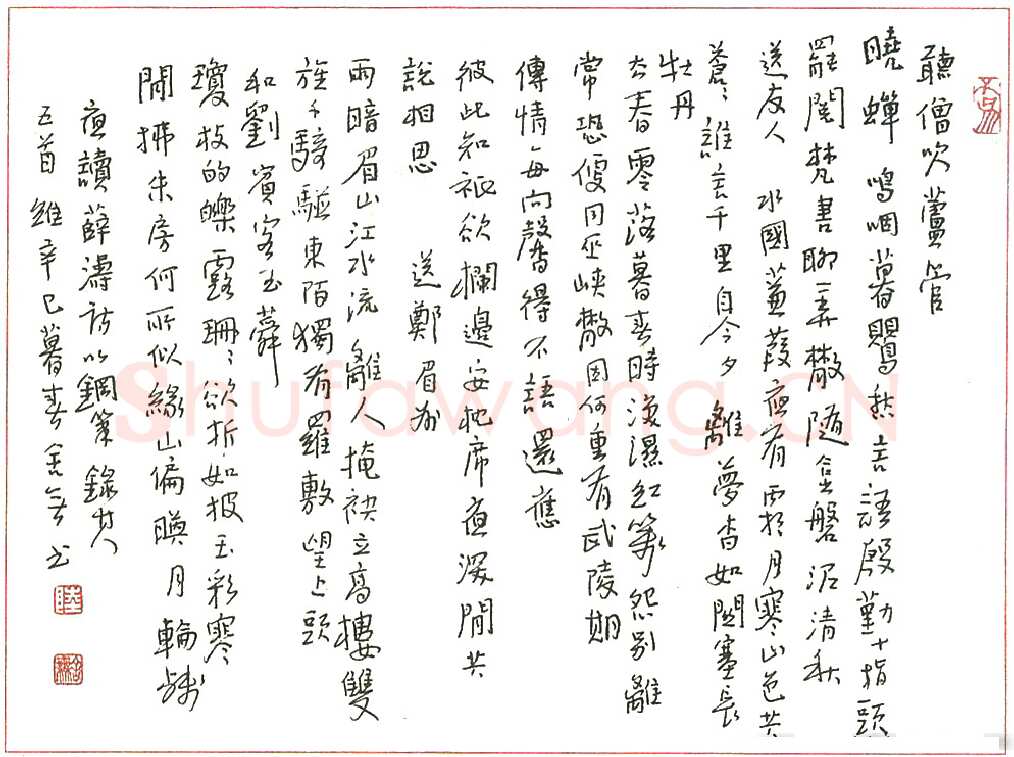 聽僧吹蘆管
曉蟬鳴咽暮鶯愁言語殷勤十指頭
罷閱梵書聊弄散隨金磬泥清秋
送友人 水國蒹葭夜有霜月寒山色共
蒼〻誰言千里自今夕離夢杳如關塞長
牡丹
去春零落暮春時淚濕紅箋怨別離
常恐便同巫峽散因何重有武陵期
傳情每向馨香得不語還應
彼此知祗欲欄邊安枕席夜深閒共
說相思 送鄭眉州
雨暗眉山江水流離人掩袂立高樓雙
旌千騎駐東陌獨有羅敷望上頭
和劉賓客玉蕣
瓊枝的皪露珊〻欲折如披玉彩寒
閒拂朱房何所似緣山偏映月輪殘
夜讀薛濤詩以鋼筆錄其
五首 維辛巳暮春舍無書
Shufawang.CN
陸